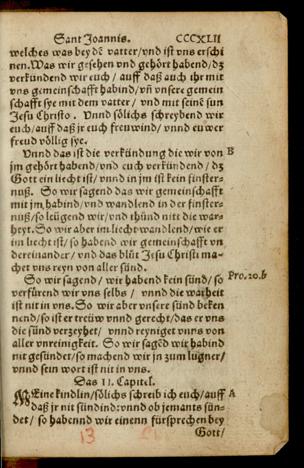 Sant Joannis. CCCXLII
welches was bey dē vatter/vnd ist vns erschi
nen. Was wir gesehen vnd gehört habend/dz
verkündend wir euch/ auff daß auch ihr mit
vns gemeinschafft habind/vñ vnsere gemein
schafft sye mit dem vatter / vnd mit seinē sun
Jesu Christo. Vnnd sölichs schreybend wir
euch/auff daß jr euch freuwind/vnnd euwer
freud völlig sye.
Vnnd das ist die verkündung die wir von B
jm gehört habend/vnd euch verkündend/ dz
Gott ein liecht ist/ vnnd in jm ist kein finster=
nuß. So wir sagend das wir gemeinschafft
mit jm habind/vnd wandlend in der finster=
nuß/so leügend wir/vnd thünd nitt die war=
heyt. So wir aber im liecht wandlend/wie er
im liecht ist/so habend wir gemeinschafft vn
dereinander/vnd das blůt Jesu Christi ma=
chet vns reyn von aller sünd.
So wir sagend/ wir habend kein sünd/ so Pro. 20. b
verfürend wir vns selbs / vnnd die warheit
ist nit in vns. So wir aber vnsere sünd beken
nend/so ist er treüw vnnd gerecht/das er vns
die sünd verzeyhet/ vnnd reyniget vnns von
aller vnreinigkeit. So wir sagēd wir habind
nit gesündet/so machend wir jn zum lugner/
vnnd sein wort ist nit in vns.
Das II. Capitel.
MEine kindlin/sölichs schreib ich euch/auff A
daß jr nit sündind: vnnd ob jemants sün=
det/ so habennd wir einenn fürsprechen bey
Gott/
13